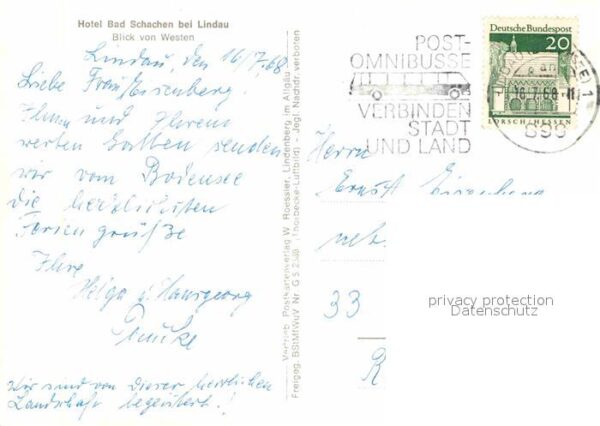 Hotel Bad Schachen bei Lindau
Blick von Westen
Lindau, den 16/7.68
Liebe Frau Eisenberg.
Ihnen und Ihrem
werten Gatten senden
wir vom Bodensee
die herzlichsten
Feriengrüße
Ihre
Helga u. Hansgeorg
Wir sind von dieser herrlichen
Landschaft begeistert!
Vertrieb: Postkartenverlag W. Roessler, Lindenberg im Allgäu
Freigeg. BStMfWuV Nr. G S 2538 (Thorbecke-Luftbild) - Jegl. Nachdr. verboten
POST-
OMNIBUSSE
VERBINDEN
STADT
UND LAND
16.7.68-11
899
Deutsche Bundespost
20
LORSCH/HESSEN
Herrn
Ernst
33
R
privacy protection
Datenschutz